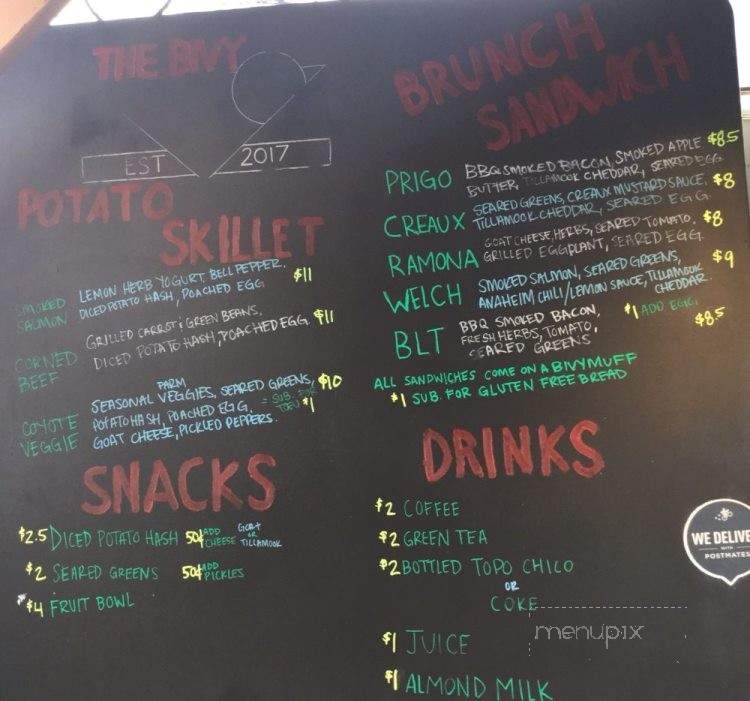 THE BIVY
EST 2017
POTATO
SKILLET
SMOKED
SALMON
LEMON HERB YOGURT, BELL PEPPER,
DICED POTATO HASH, POACHED EGG
$11
CORNED
BEEF
GRILLED CARROT & GREEN BEANS,
DICED POTATO HASH, POACHED EGG
$11
COYOTE
VEGGIE
FARM
SEASONAL VEGGIES, SEARED GREENS,
POTATO HASH, POACHED EGG,
GOAT CHEESE, PICKLED PEPPERS.
$10
SUB.
TOFU $1
SNACKS
$2.5 DICED POTATO HASH 50¢ ADD CHEESE GOAT OR TILLAMOOK
$2 SEARED GREENS 50¢ ADD PICKLES
$4 FRUIT BOWL
BRUNCH
SANDWICH
PRIGO
BBQ SMOKED BACON, SMOKED APPLE
BUTTER, TILLAMOOK CHEDDAR, SEARED EGG
$8.5
CREAUX
SEARED GREENS, CREAUX MUSTARD SAUCE,
TILLAMOOK CHEDDAR, SEARED EGG
$8
RAMONA
GOAT CHEESE, HERBS, SEARED TOMATO,
GRILLED EGGPLANT, SEARED EGG
$8
WELCH
SMOKED SALMON, SEARED GREENS,
ANAHEIM CHILI/LEMON SAUCE, TILLAMOOK
CHEDDAR.
$9
BLT
BBQ SMOKED BACON,
FRESH HERBS, TOMATO,
SEARED GREENS
$1 ADD EGG
$8.5
ALL SANDWICHES COME ON A BIVYMUFF
$1 SUB. FOR GLUTEN FREE BREAD
DRINKS
$2 COFFEE
$2 GREEN TEA
$2 BOTTLED TOPO CHICO
OR
COKE
$1 JUICE
$1 ALMOND MILK
WE DELIVE
WITH
POSTMATES
menupix